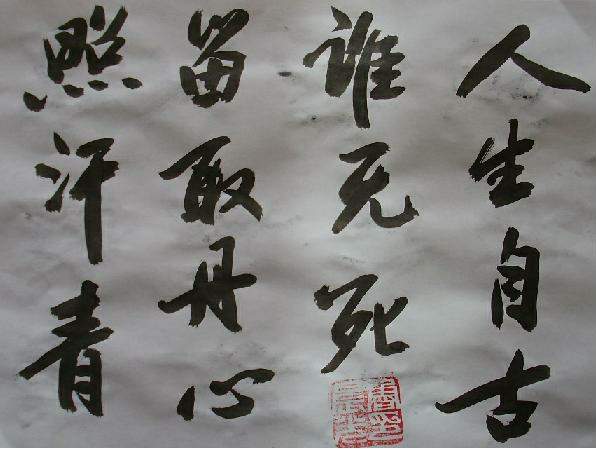 人生自古
谁无死
留取丹心
照汗青